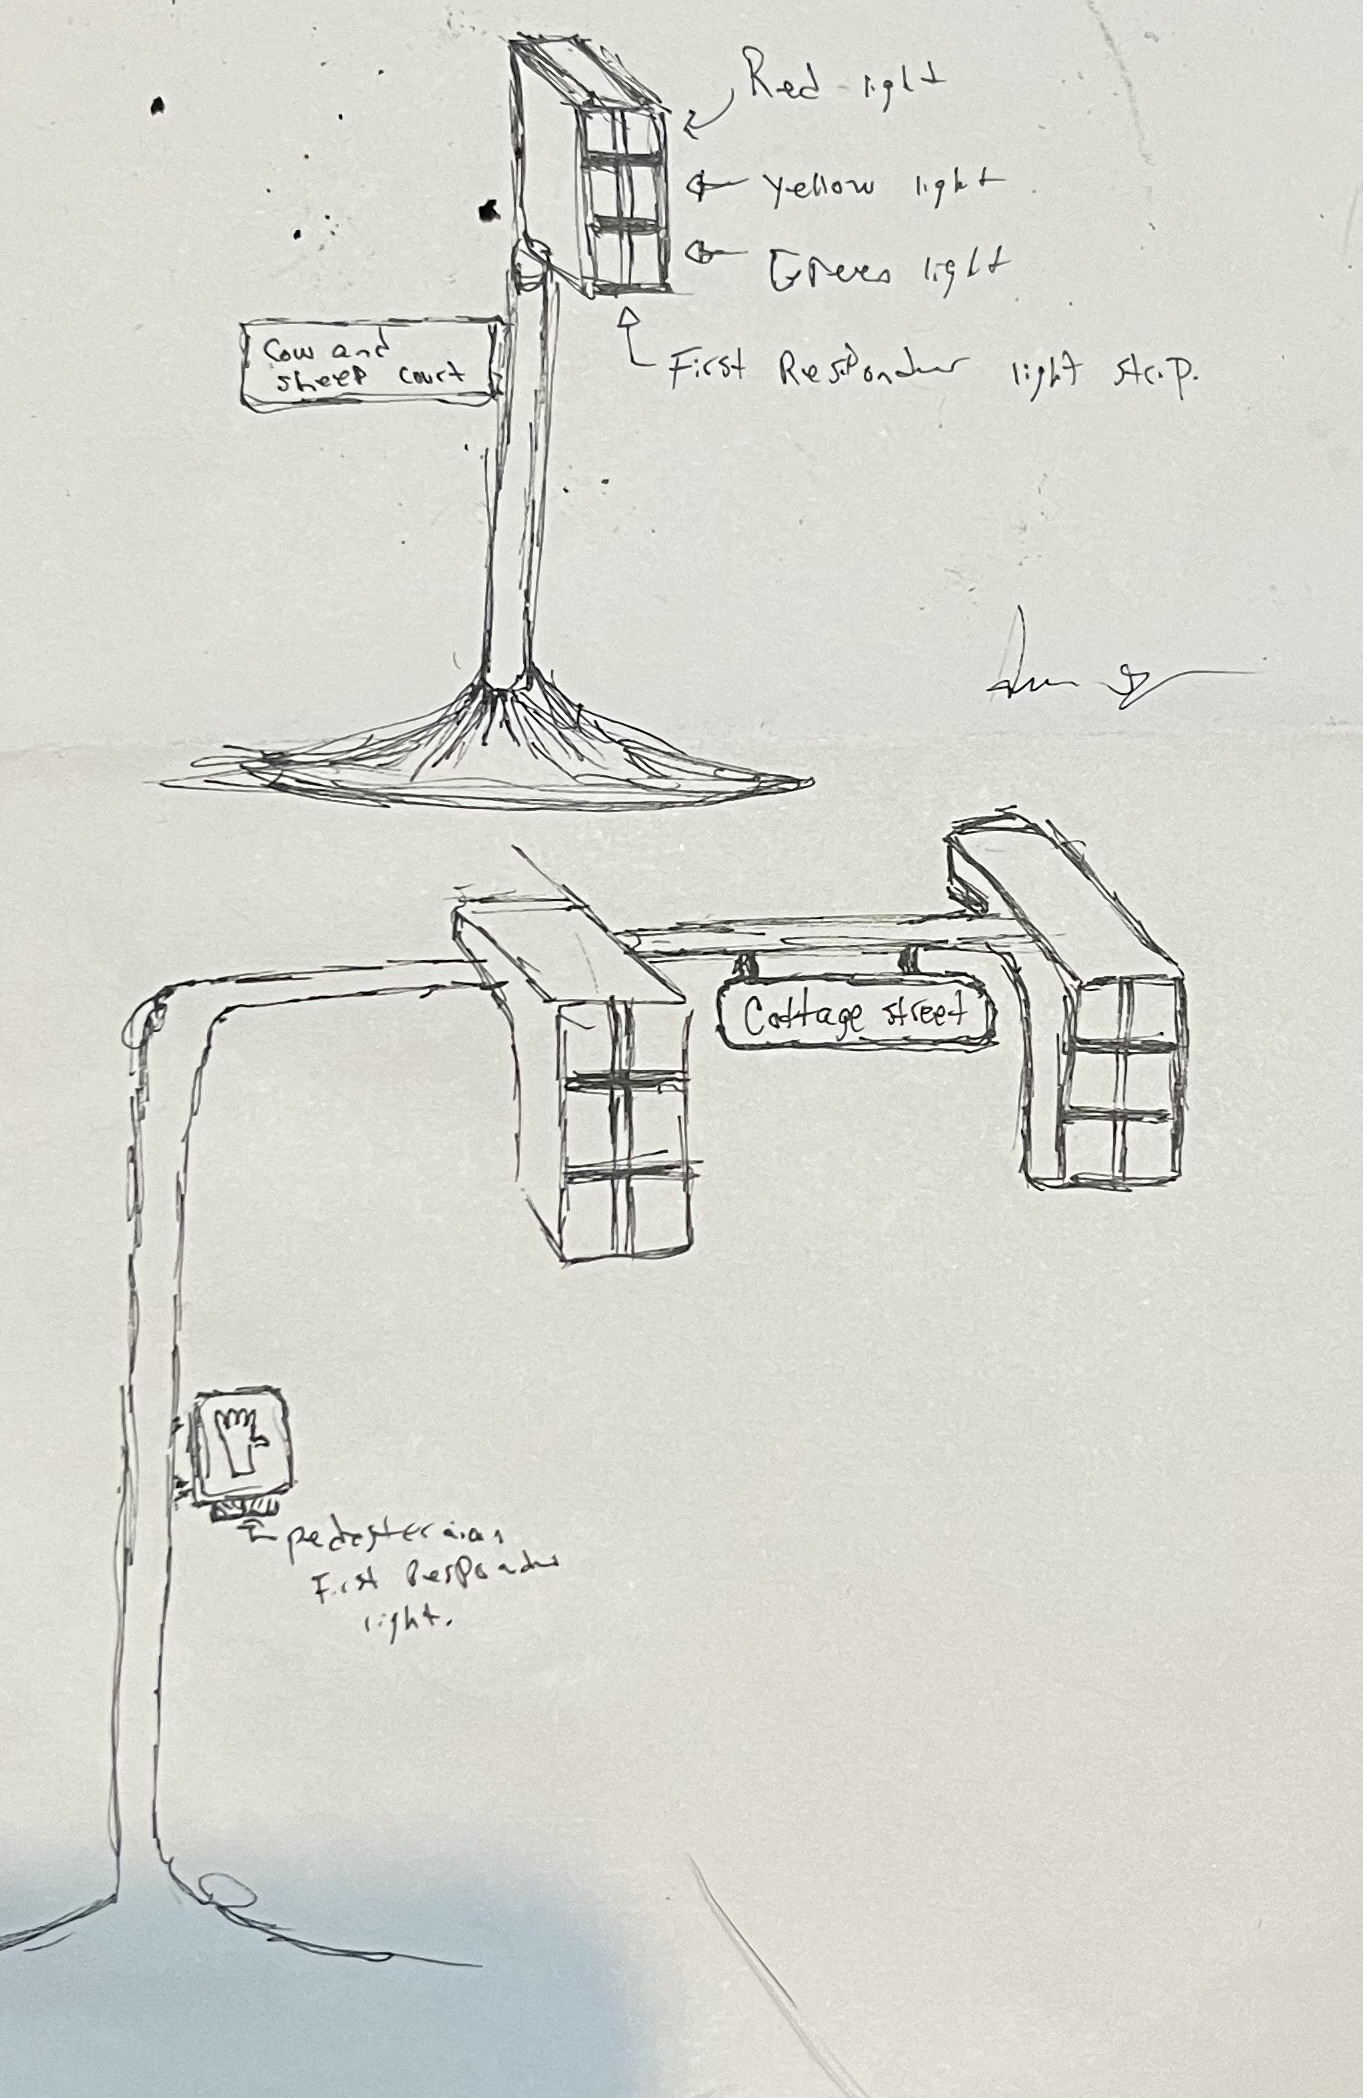 Red light
Yellow light
Green light
First Responder light strip.
Cow and
sheep court
Cottage street
pedesterian
First Responder
light.